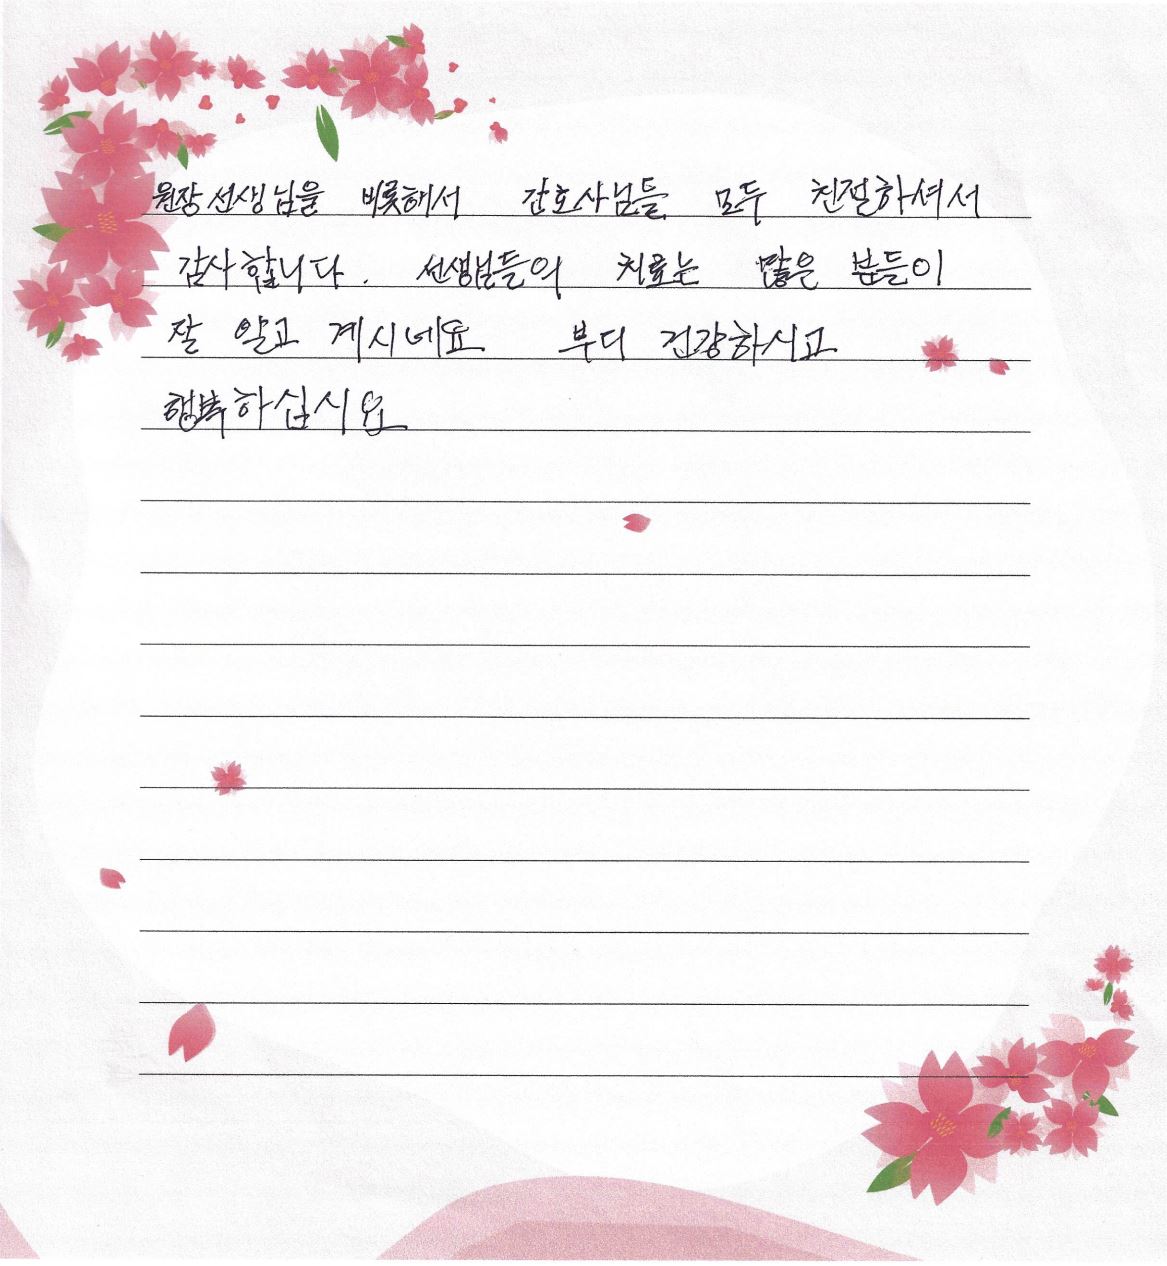 원장선생님을 비롯해서 간호사님들 모두 친절하셔서
감사합니다. 선생님들의 치료는 많은 분들이
잘 알고 계시네요 부디 건강하시고
행복하십시요